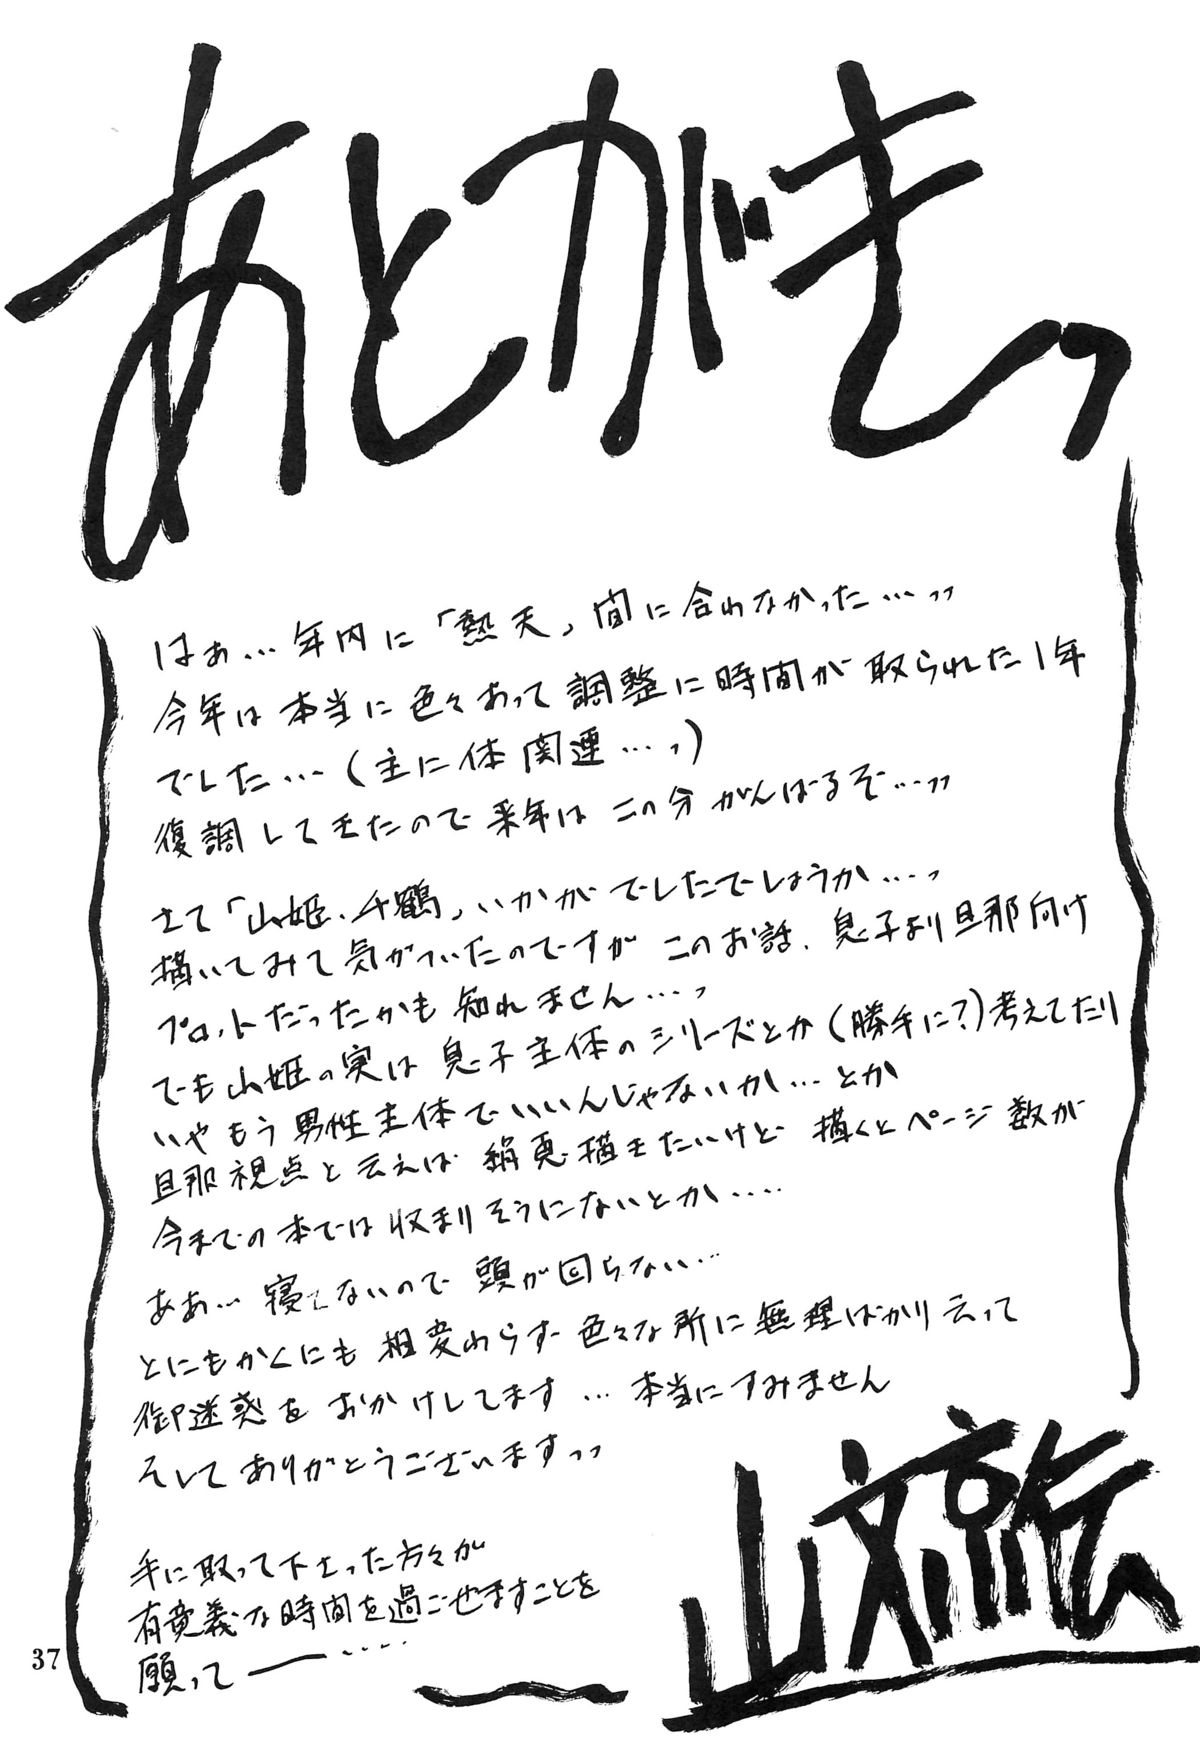 あとがきっ
はぁ…年内に「熱天」間に合わなかった…っっ
今年は本当に色々あって調整に時間が取られた1年
でした…(主に体関連…っ)
復調してきたので来年はこの分がんばるぞ…っっ
さて「山姫、千鶴」いかがでしたでしょうか…っ
描いてみて気がついたのですがこのお話、息子より旦那向け
プロットだったかも知れません…っ
でも山姫の実は息子主体のシリーズとか(勝手に?)考えてたり
いやもう男性主体でいいんじゃないか…とか
旦那視点と云えば絹恵描きたいけど描くとページ数が
今までの本では収まりそうにないとか‥‥
ああ…寝てないので頭が回らない…
とにもかくにも相変わらず色々な所に無理ばかり云って
御迷惑をおかけしてます…本当にすみません
そしてありがとうございますっっ
手に取って下さった方々が
有意義な時間を過ごせますことを
願って――‥‥
山文京伝
37